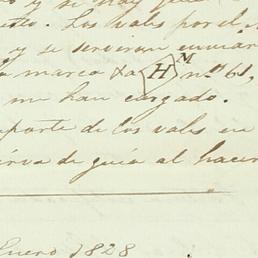 y si hay
Los vales por el
y se serviran enviar
marca H M nº 61,
me han cargado.
importe de los vales en
sirva de guia al hacer
Enero 1828